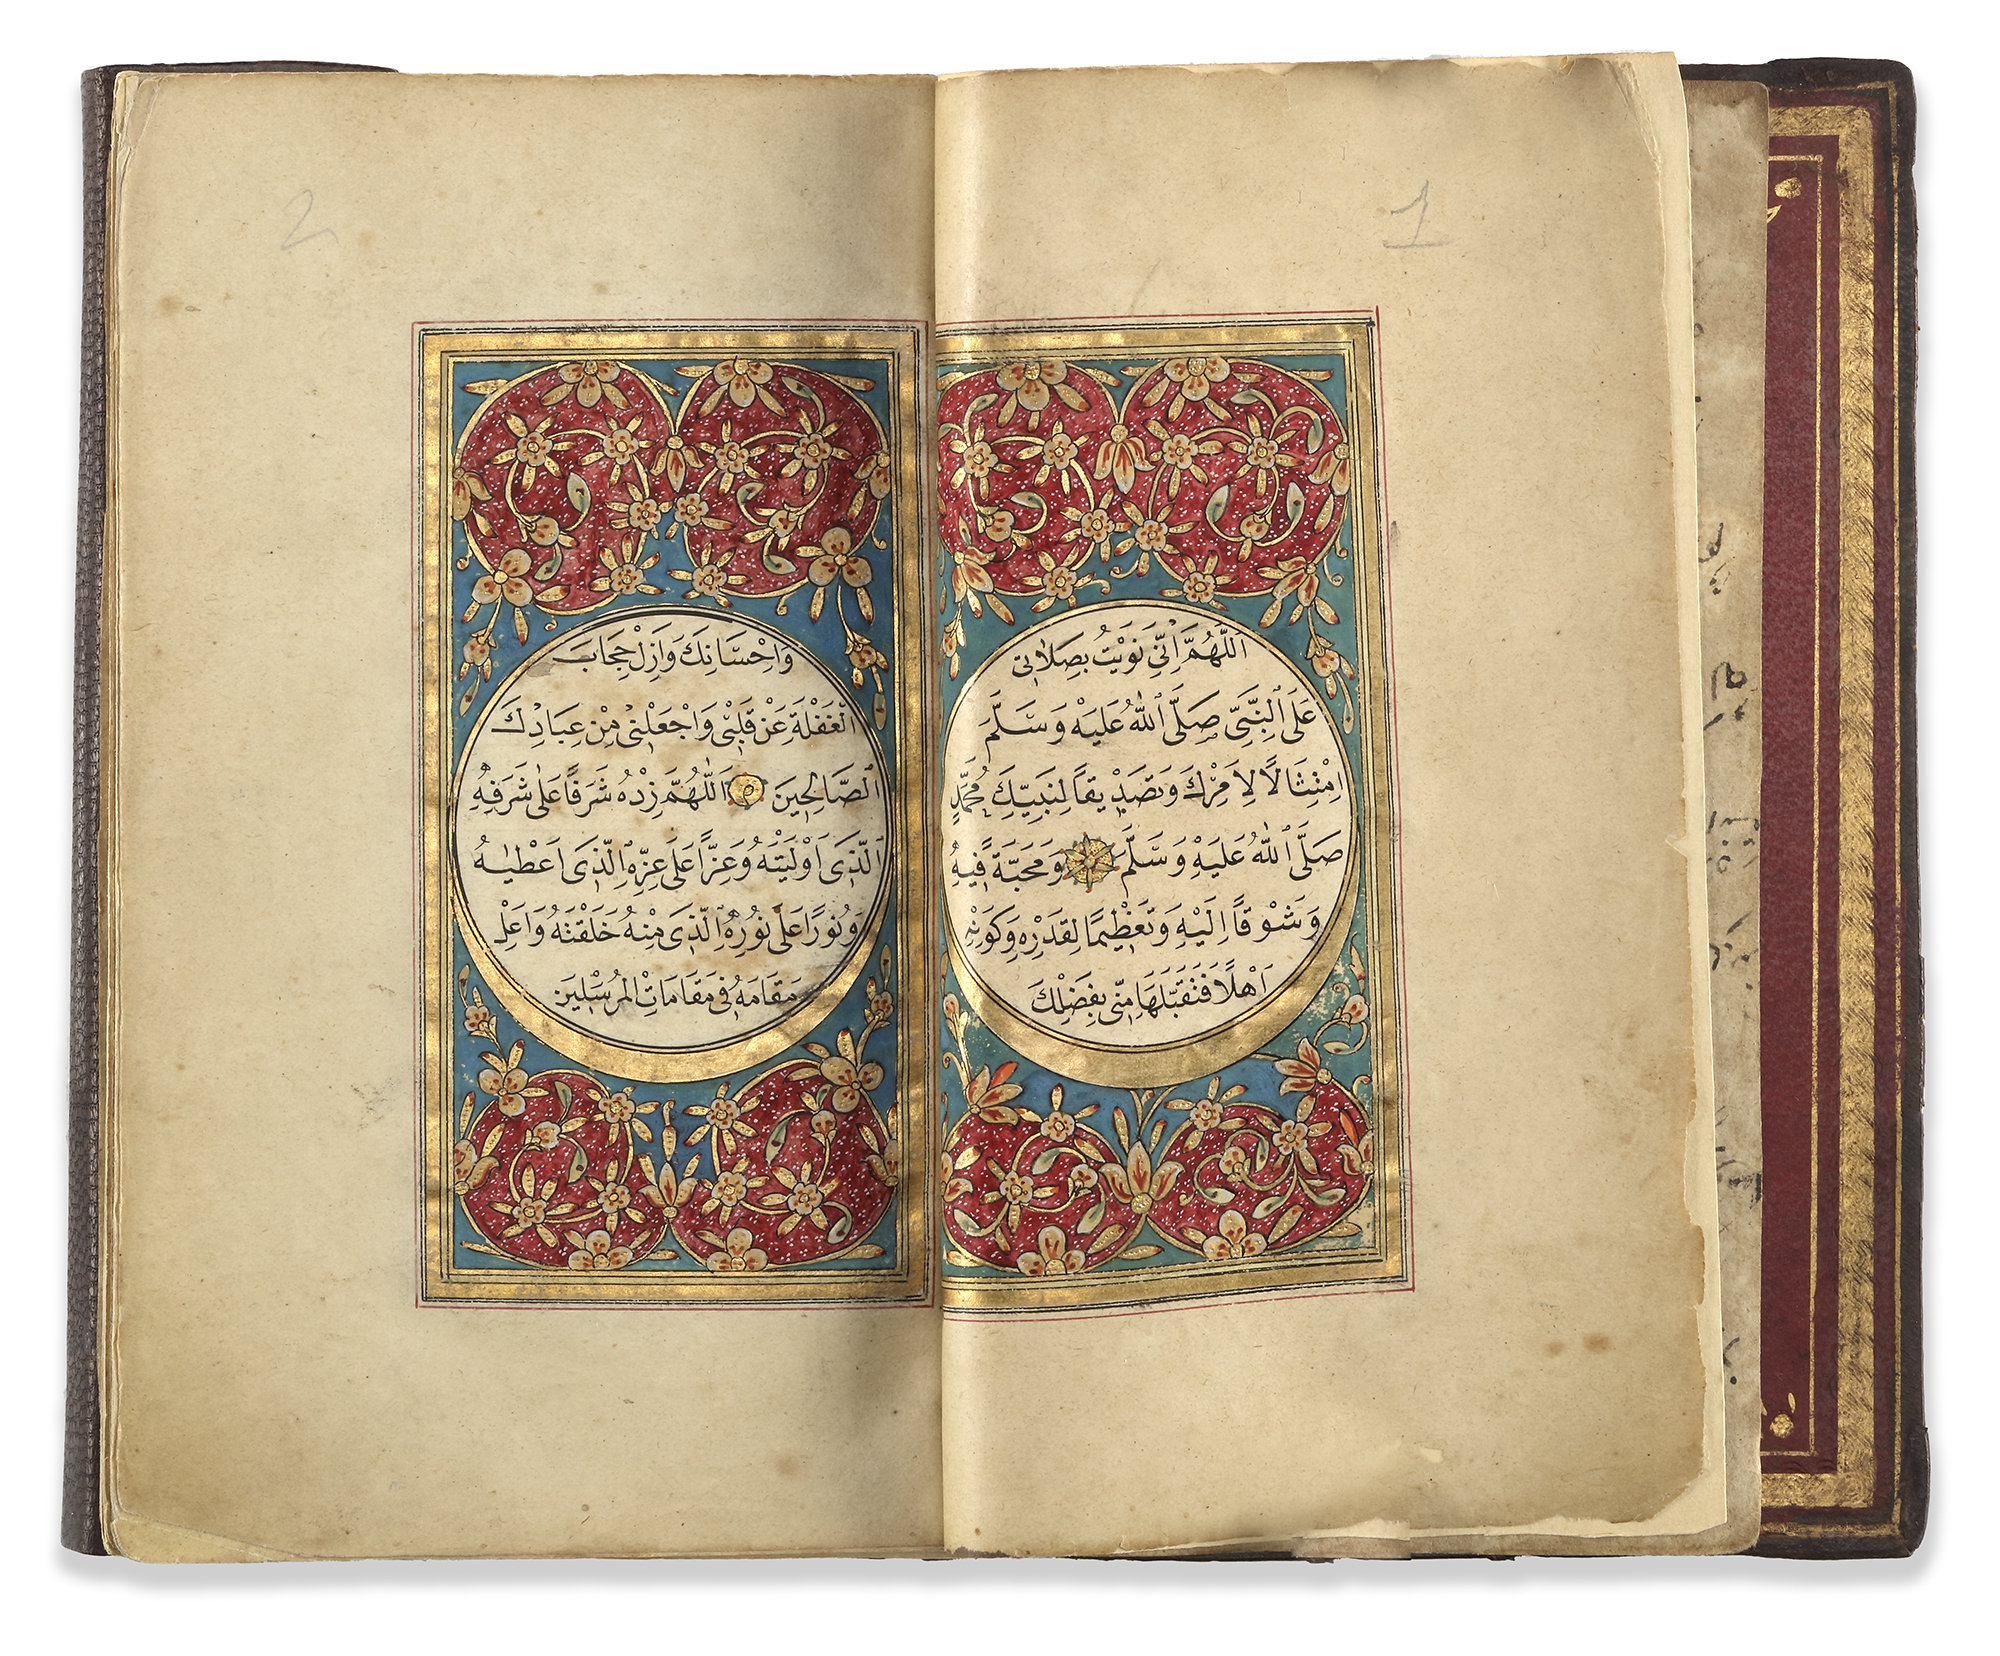 1
اَللّٰهُمَّ اِنّٖى نَوَيْتُ بِصَلَاتٖى
عَلَى النَّبِىِّ صَلَّى اللّٰهُ عَلَيْهِ وَسَلَّمَ
اِمْتِثَالًا لِاَمْرِكَ وَتَصْدٖيقًا لِنَبِيِّكَ مُحَمَّدٍ
صَلَّى اللّٰهُ عَلَيْهِ وَسَلَّمَ وَمَحَبَّةً فٖيهِ
وَشَوْقًا اِلَيْهِ وَتَعْظٖيمًا لِقَدْرِهٖ وَكَوْنِهٖ
اَهْلًا فَتَقَبَّلْهَا مِنّٖى بِفَضْلِكَ
2
وَاِحْسَانِكَ وَاَزِلْ حِجَابَ
الْغَفْلَةِ عَنْ قَلْبٖى وَاجْعَلْنٖى مِنْ عِبَادِكَ
الصَّالِحٖينَ اَللّٰهُمَّ زِدْهُ شَرَفًا عَلٰى شَرَفِهِ
الَّذٖى اَوْلَيْتَهُ وَعِزًّا عَلٰى عِزِّهِ الَّذٖى اَعْطَيْتَهُ
وَنُورًا عَلٰى نُورِهِ الَّذٖى مِنْهُ خَلَقْتَهُ وَاَعْلِ
مَقَامَهُ فٖى مَقَامَاتِ الْمُرْسَلٖينَ